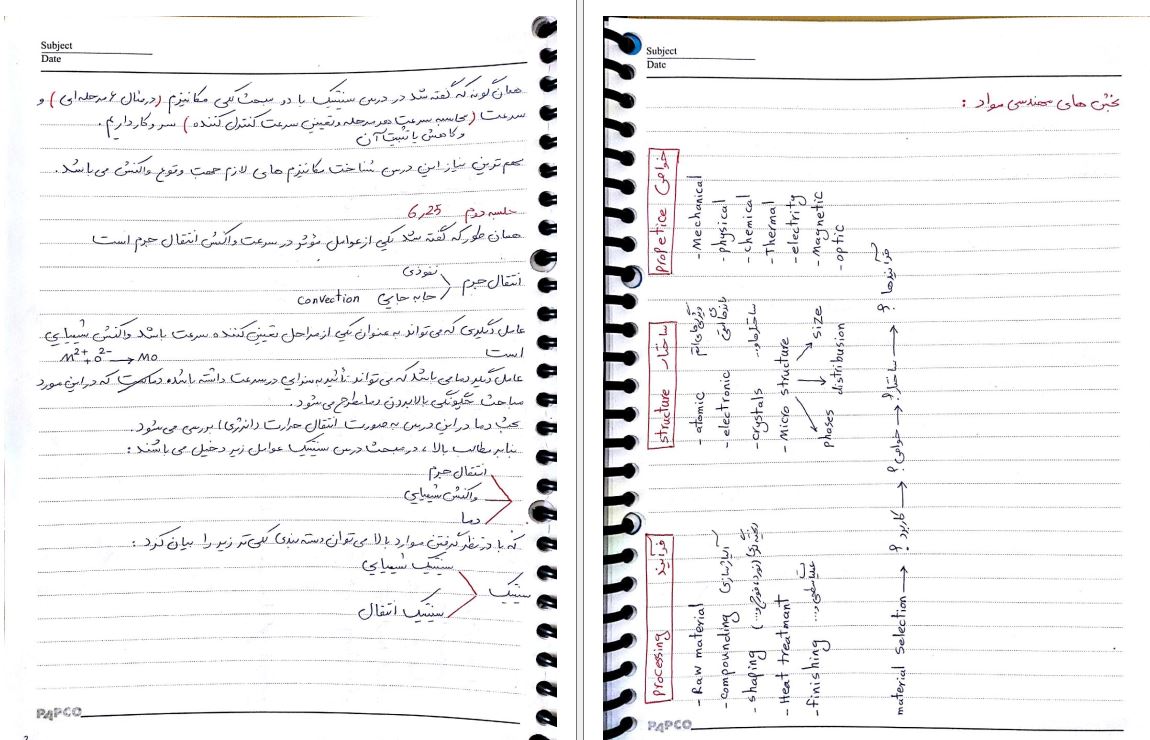 Subject
Date
همان گونه که گفته شد در درس سنتیک با دو مبحث کلی مکانیزم (در مثال 6 مرحله ای) و
سرعت (محاسبه سرعت هر مرحله و تعیین سرعت کنترل کننده) سر و کار داریم.
و کاهش یا تثبیت آن
مهم ترین نیاز این درس شناخت مکانیزم های لازم جهت وقوع واکنش می باشد.
جلسه دوم 6,25
همان طور که گفته شد یکی از عوامل مؤثر در سرعت واکنش انتقال جرم است
انتقال جرم
نفوذی
جابه جایی convection
عامل دیگری که می تواند به عنوان یکی از مراحل تعیین کننده سرعت باشد واکنش شیمیایی
است
M²⁺ + O²⁻ → MO
عامل دیگر دما می باشد که می تواند تأثیر به سزایی در سرعت داشته باشد که در این مورد
مباحث چگونگی بالا بردن دما مطرح می شود.
بحث دما در این درس به صورت انتقال حرارت (انرژی) بررسی می شود.
بنابر مطالب بالا، در مبحث درس سنتیک عوامل زیر دخیل می باشند:
انتقال جرم
واکنش شیمیایی
دما
که با در نظر گرفتن موارد بالا می توان دسته بندی کلی تر زیر را بیان کرد:
سنتیک
سنتیک شیمیایی
سنتیک انتقال
PAPCO
2
Subject
Date
بخش های مهندسی مواد:
processing فرآیند
- Raw material
- compounding آلیاژسازی
- shaping
- Heat treatmant
- finishing
structure ساختار
- atomic
- electronic
- crystals
- Micro structure
phases
distribusion
size
propetice خواص
- Mechanical
- physical
- chemical
- Thermal
- electrity
- Magnetic
- optic
material selection → کاربرد؟ → خواص؟ → ساختار؟ → فرآیندها؟
PAPCO